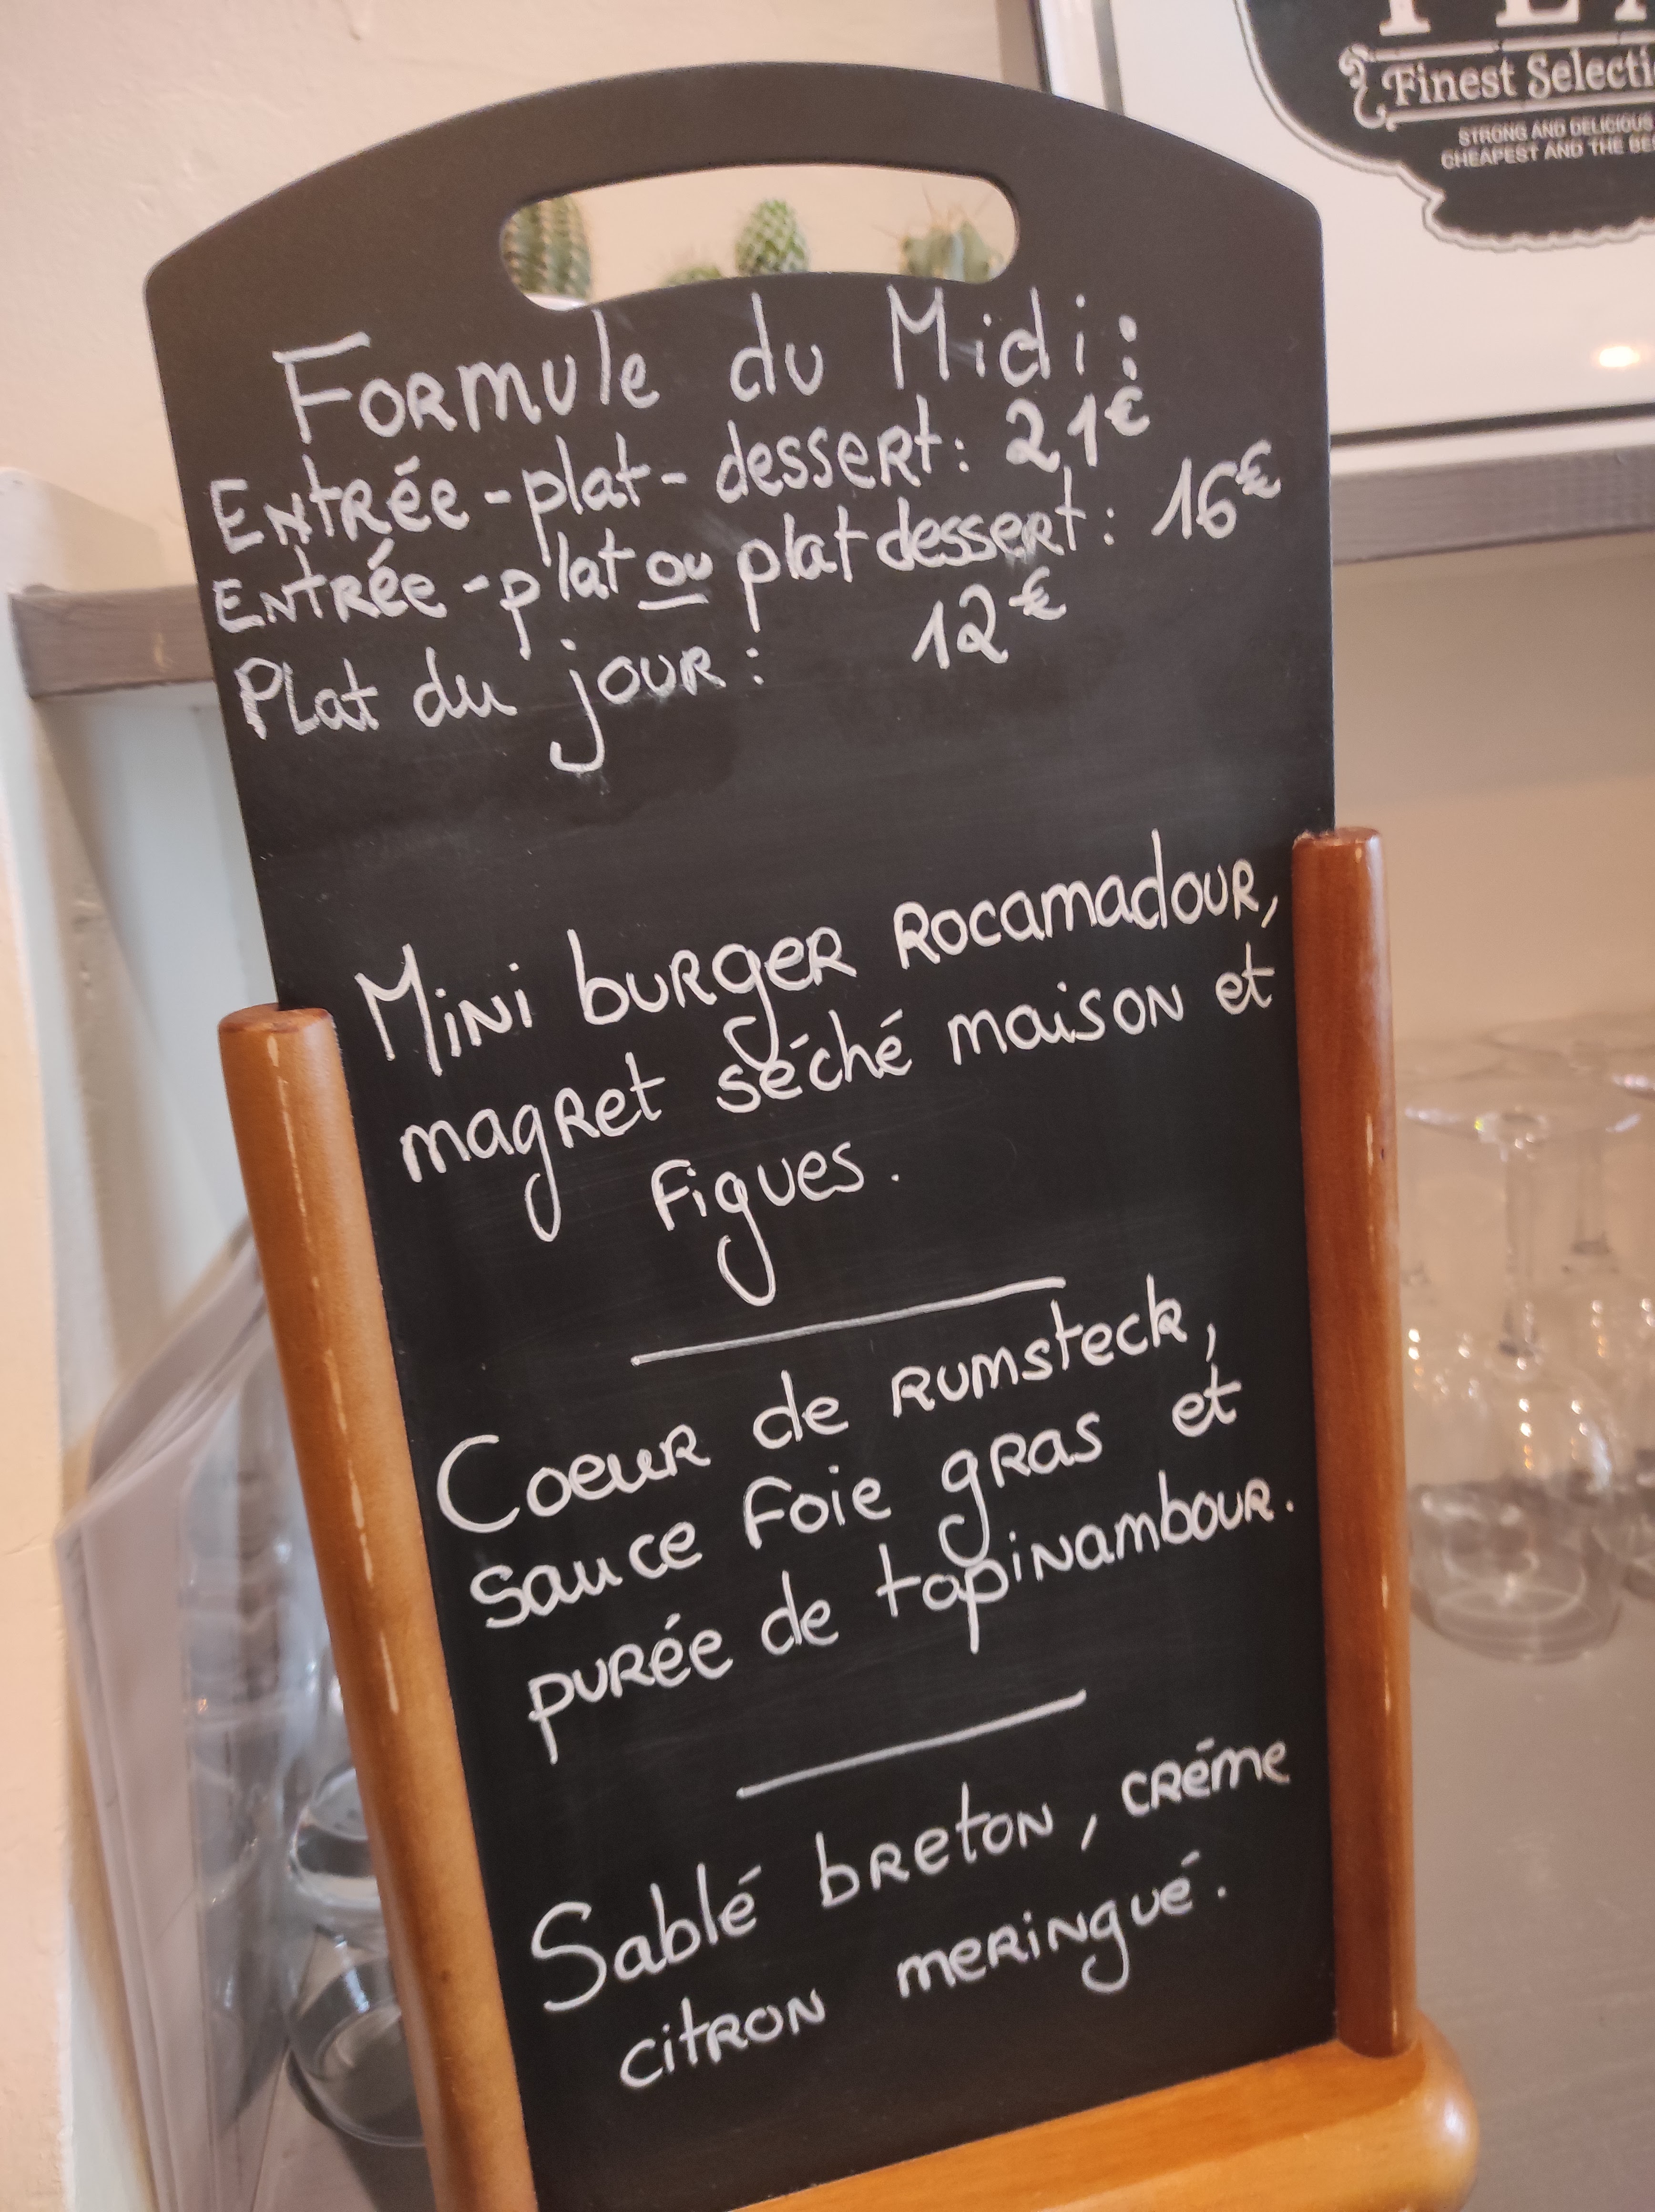 Finest Selecti
STRONG AND DELICIOUS
CHEAPEST AND THE BES
Formule du Midi :
Entrée - plat - dessert : 21€
Entrée - plat ou plat dessert : 16€
Plat du jour : 12€
Mini burger Rocamadour,
magret séché maison et
figues.
Coeur de rumsteck,
sauce foie gras et
purée de topinambour.
Sablé breton, créme
citron meringué.